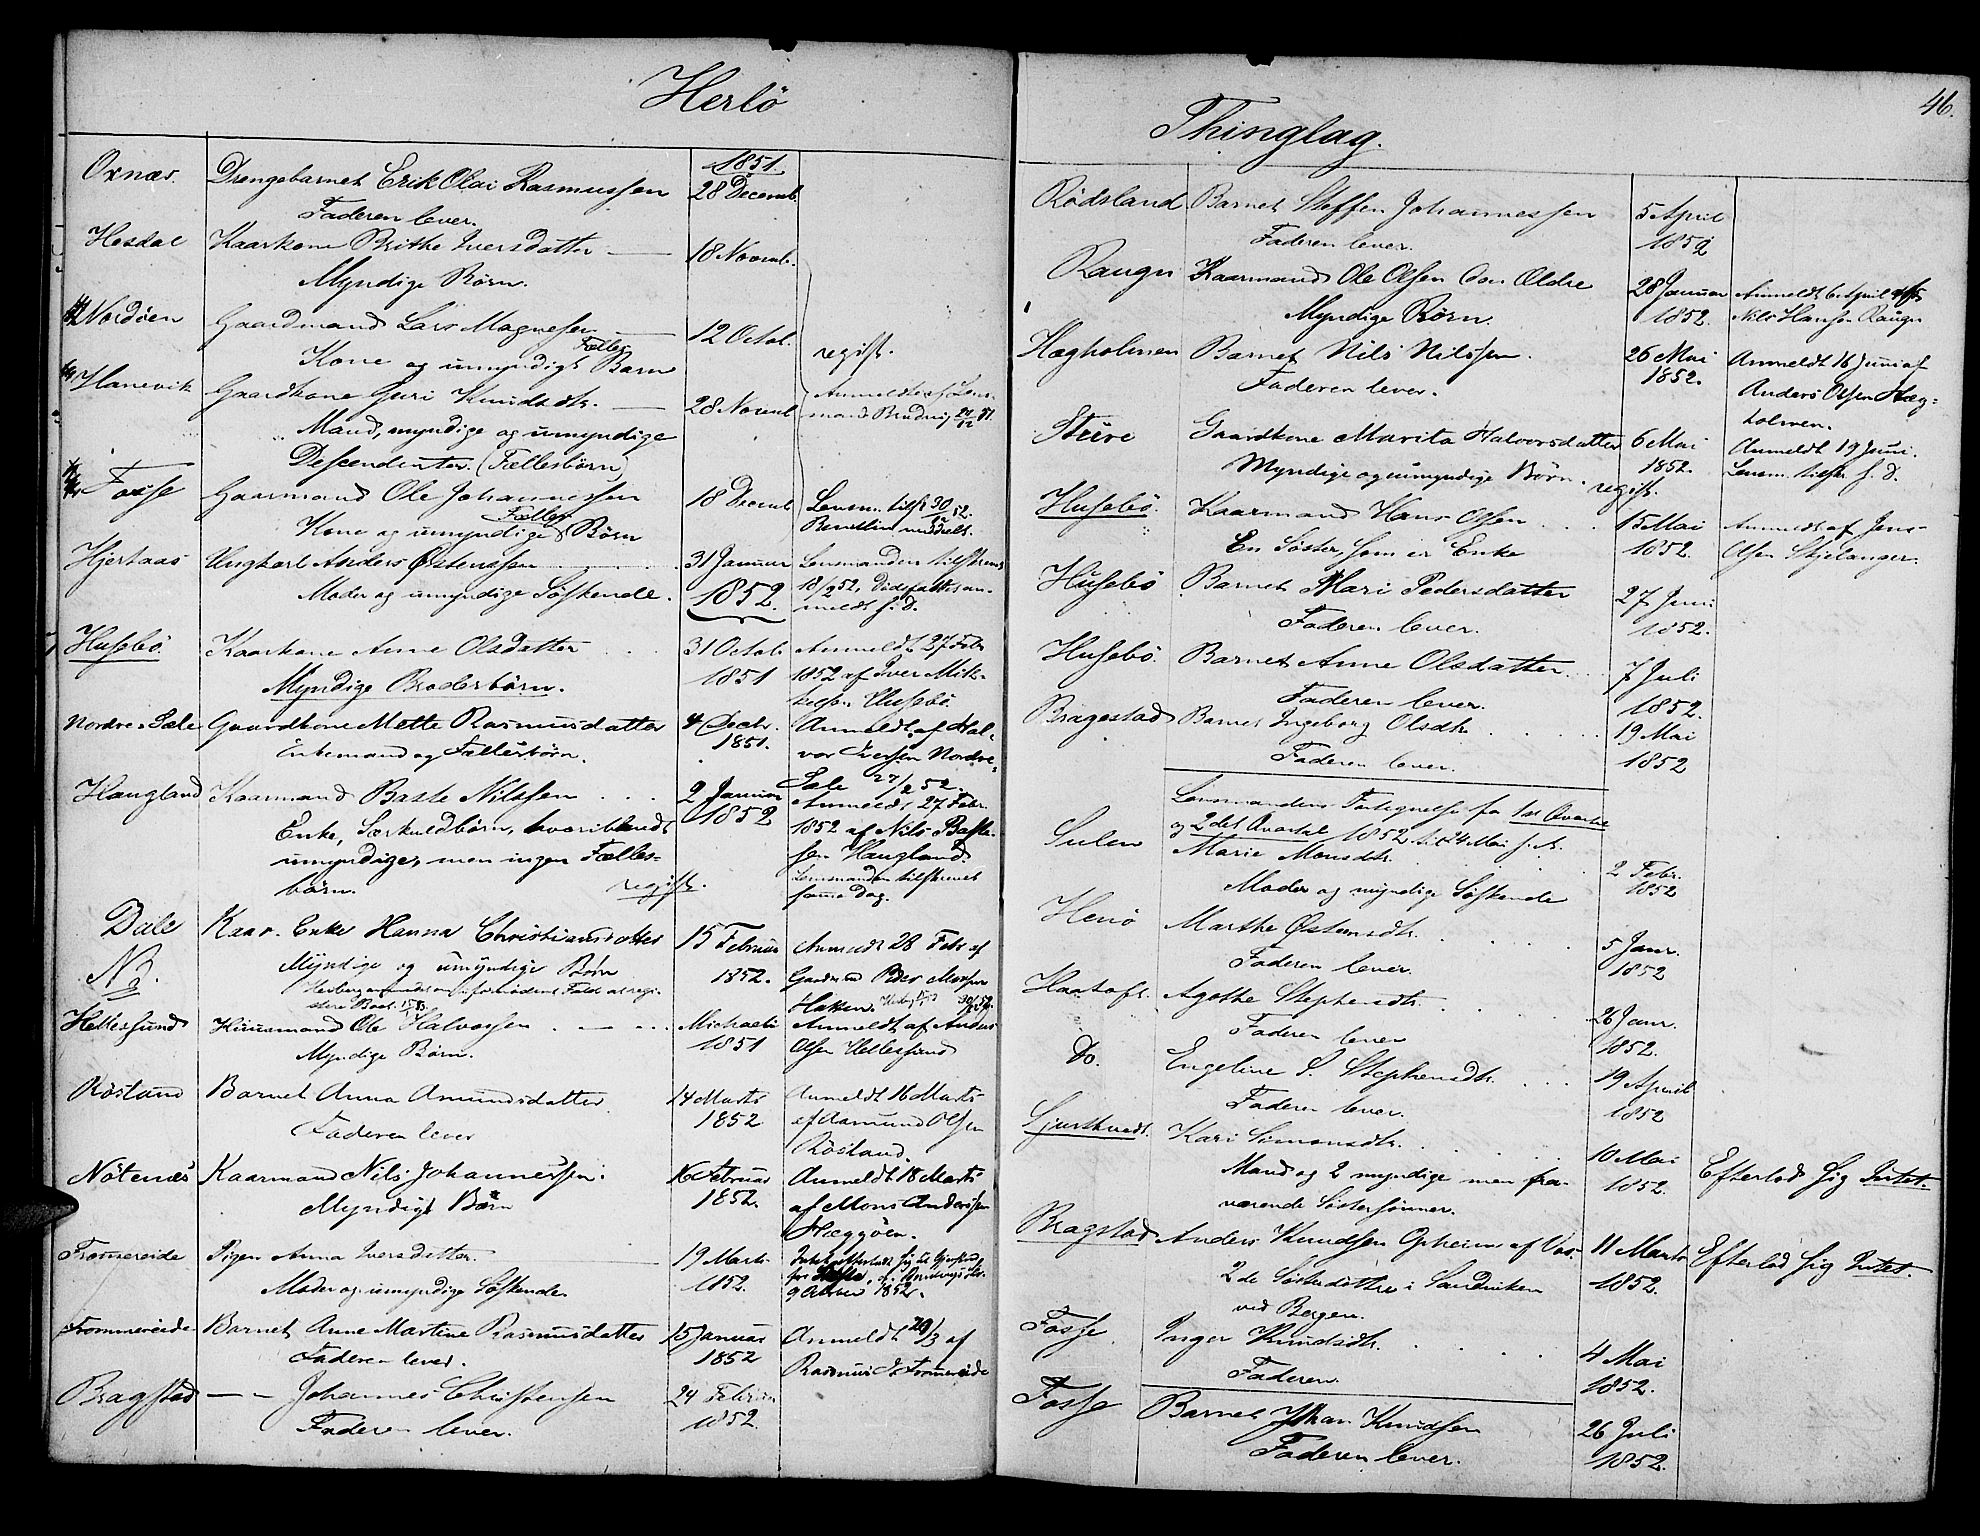 Herlö
1851.
Oxnæs. Drengebarnet Erik Olai Rasmussen 28 Decemb.
Faderen lever.
Hesdal Kaarkone Brithe Iversdatter 18 Novemb.
Myndige Börn.
Nordöen Gaardmand Lars Magnesen 12 Octob.
Kone og umyndigt Fælles Barn regist.
Hanevik Gaardkone Guri Knudsdtr. 28 Novemb Anmeldt af Lens-
Mand, myndige og umyndige mand
Descendenter. (Fællesbörn)
Fosse Gaarmand Ole Johannessen 18 Decemb Lensm. tilsk 30/52.
Kone og umyndige Fælles Börn
Hjertaas Ungkarl Anders Østenssen 31 Januar Lensmanden tilskrevet
Moder og umyndige Söskende. 1852. 18/2 52, Dödsfaldet an-
meldt s. D.
Husebö. Kaarkone Anne Olsdatter 31 Octob Anmeldt 27 Febr
Myndige Broderbörn. 1851 1852 af Iver Mik-
kelsen Husebö.
Nordre Sæle Gaardkone Mette Rasmusdatter 4 Decbr. Anmeldt af Hal-
Enkemand og Fællesbörn. 1851. vor Iversen Nordre
Sæle 27/2 52.
Haugland Kaarmand Baste Nilssen 2 Januar Anmeldt 27 Febr.
Enke, Særkuldbörn, hvoriblandt 1852 1852 af Nils Baste-
umyndige, men ingen Fælles- sen Haugland
börn. regist. Lensmanden tilskrevet
samme Dag.
Dale Kaar-Enke Hanna Christiansdatter 15 Februar Anmeldt 28 Febr af
NB. Myndige og umyndige Börn 1852. Gaardmd Peder
Hellesund Huusmand Ole Halvorsen Michaeli Anmeldt af Anders
Myndige Börn. 1851 Olsen Hellesund
Rösland Barnet Anna Amundsdatter 14 Marts Anmeldt 16 Marts
Faderen lever 1852 af Aamund Olsen
Rösland.
Nötenæs Kaarmand Nils Johannessen 16 Februar Anmeldt 18 Marts
Myndigt Barn 1852. af Mons Anderssen
Hæggöen.
Frommereide Pigen Anna Iversdatter 19 Marts
Moder og umyndige Söskende 1852. 9 1852.
Frommereide Barnet Anne Martine Rasmusdatter 15 Januar Anmeldt 29/3 af
Faderen lever. 1852 Rasmus Frommereide
Bragstad — — Johannes Christensen 24 Februar
Faderen lever. 1852.
46.
Thinglag.
Rödsland Barnet Steffen Johannessen 5 April
Faderen lever. 1852
Raugn Kaarmand Ole Olsen den Ældre 28 Januar Anmeldt 6 April af
Myndige Börn. 1852. Nils Hansen Raugn
Hægholmen Barnet Nils Nilssen. 26 Mai Anmeldt 16 Juni af
Faderen lever. 1852. Anders Olsen Hæg-
holmen.
Sture Gaardkone Marita Halvorsdatter 6 Mai Anmeldt 19 Juni.
Myndige og umyndige Börn. regist. 1852. Lensm. tilskr s. D.
Husebö. Kaarmand Hans Olsen 15 Mai Anmeldt af Jens
En Söster, som er Enke 1852. Olsen Skjelanger.
Husebö Barnet Mari Pedersdatter 27 Juni
Faderen lever. 1852.
Husebö. Barnet Anne Olsdatter 7 Juli
Faderen lever. 1852.
Bragestad Barnet Ingeborg Olsdtr 19 Mai
Faderen lever. 1852
Lensmandens Fortegnelse for 1ste Qvartal
og 2det Qvartal 1852 til 24 Mai s. A.
Sulen Marie Monsdtr. 2 Febr.
Moder og myndige Söskende 1852
Herlö Marthe Østensdtr. 5 Janr.
Faderen lever. 1852
Haatoft. Agothe Stephensdtr. 26 Janr.
Faderen lever 1852.
Do. Engeline S. Stephensdtr. 19 April
Faderen lever. 1852
Gjerthvedt. Kari Simonsdtr. 10 Mai Efterlod sig Intet.
Mand og 2 myndige men fra- 1852.
værende Söstersönner.
Bragstad Anders Knudsen Opheim af Vos. 11 Marts Efterlod sig Intet.
2de Sösterdöttre i Sandviken 1852.
ved Bergen.
Fosse Inger Knudsdtr. 4 Mai
Faderen. 1852.
Fosse Barnet Johan Knudsen 26 Juli
Faderen lever. 1852.